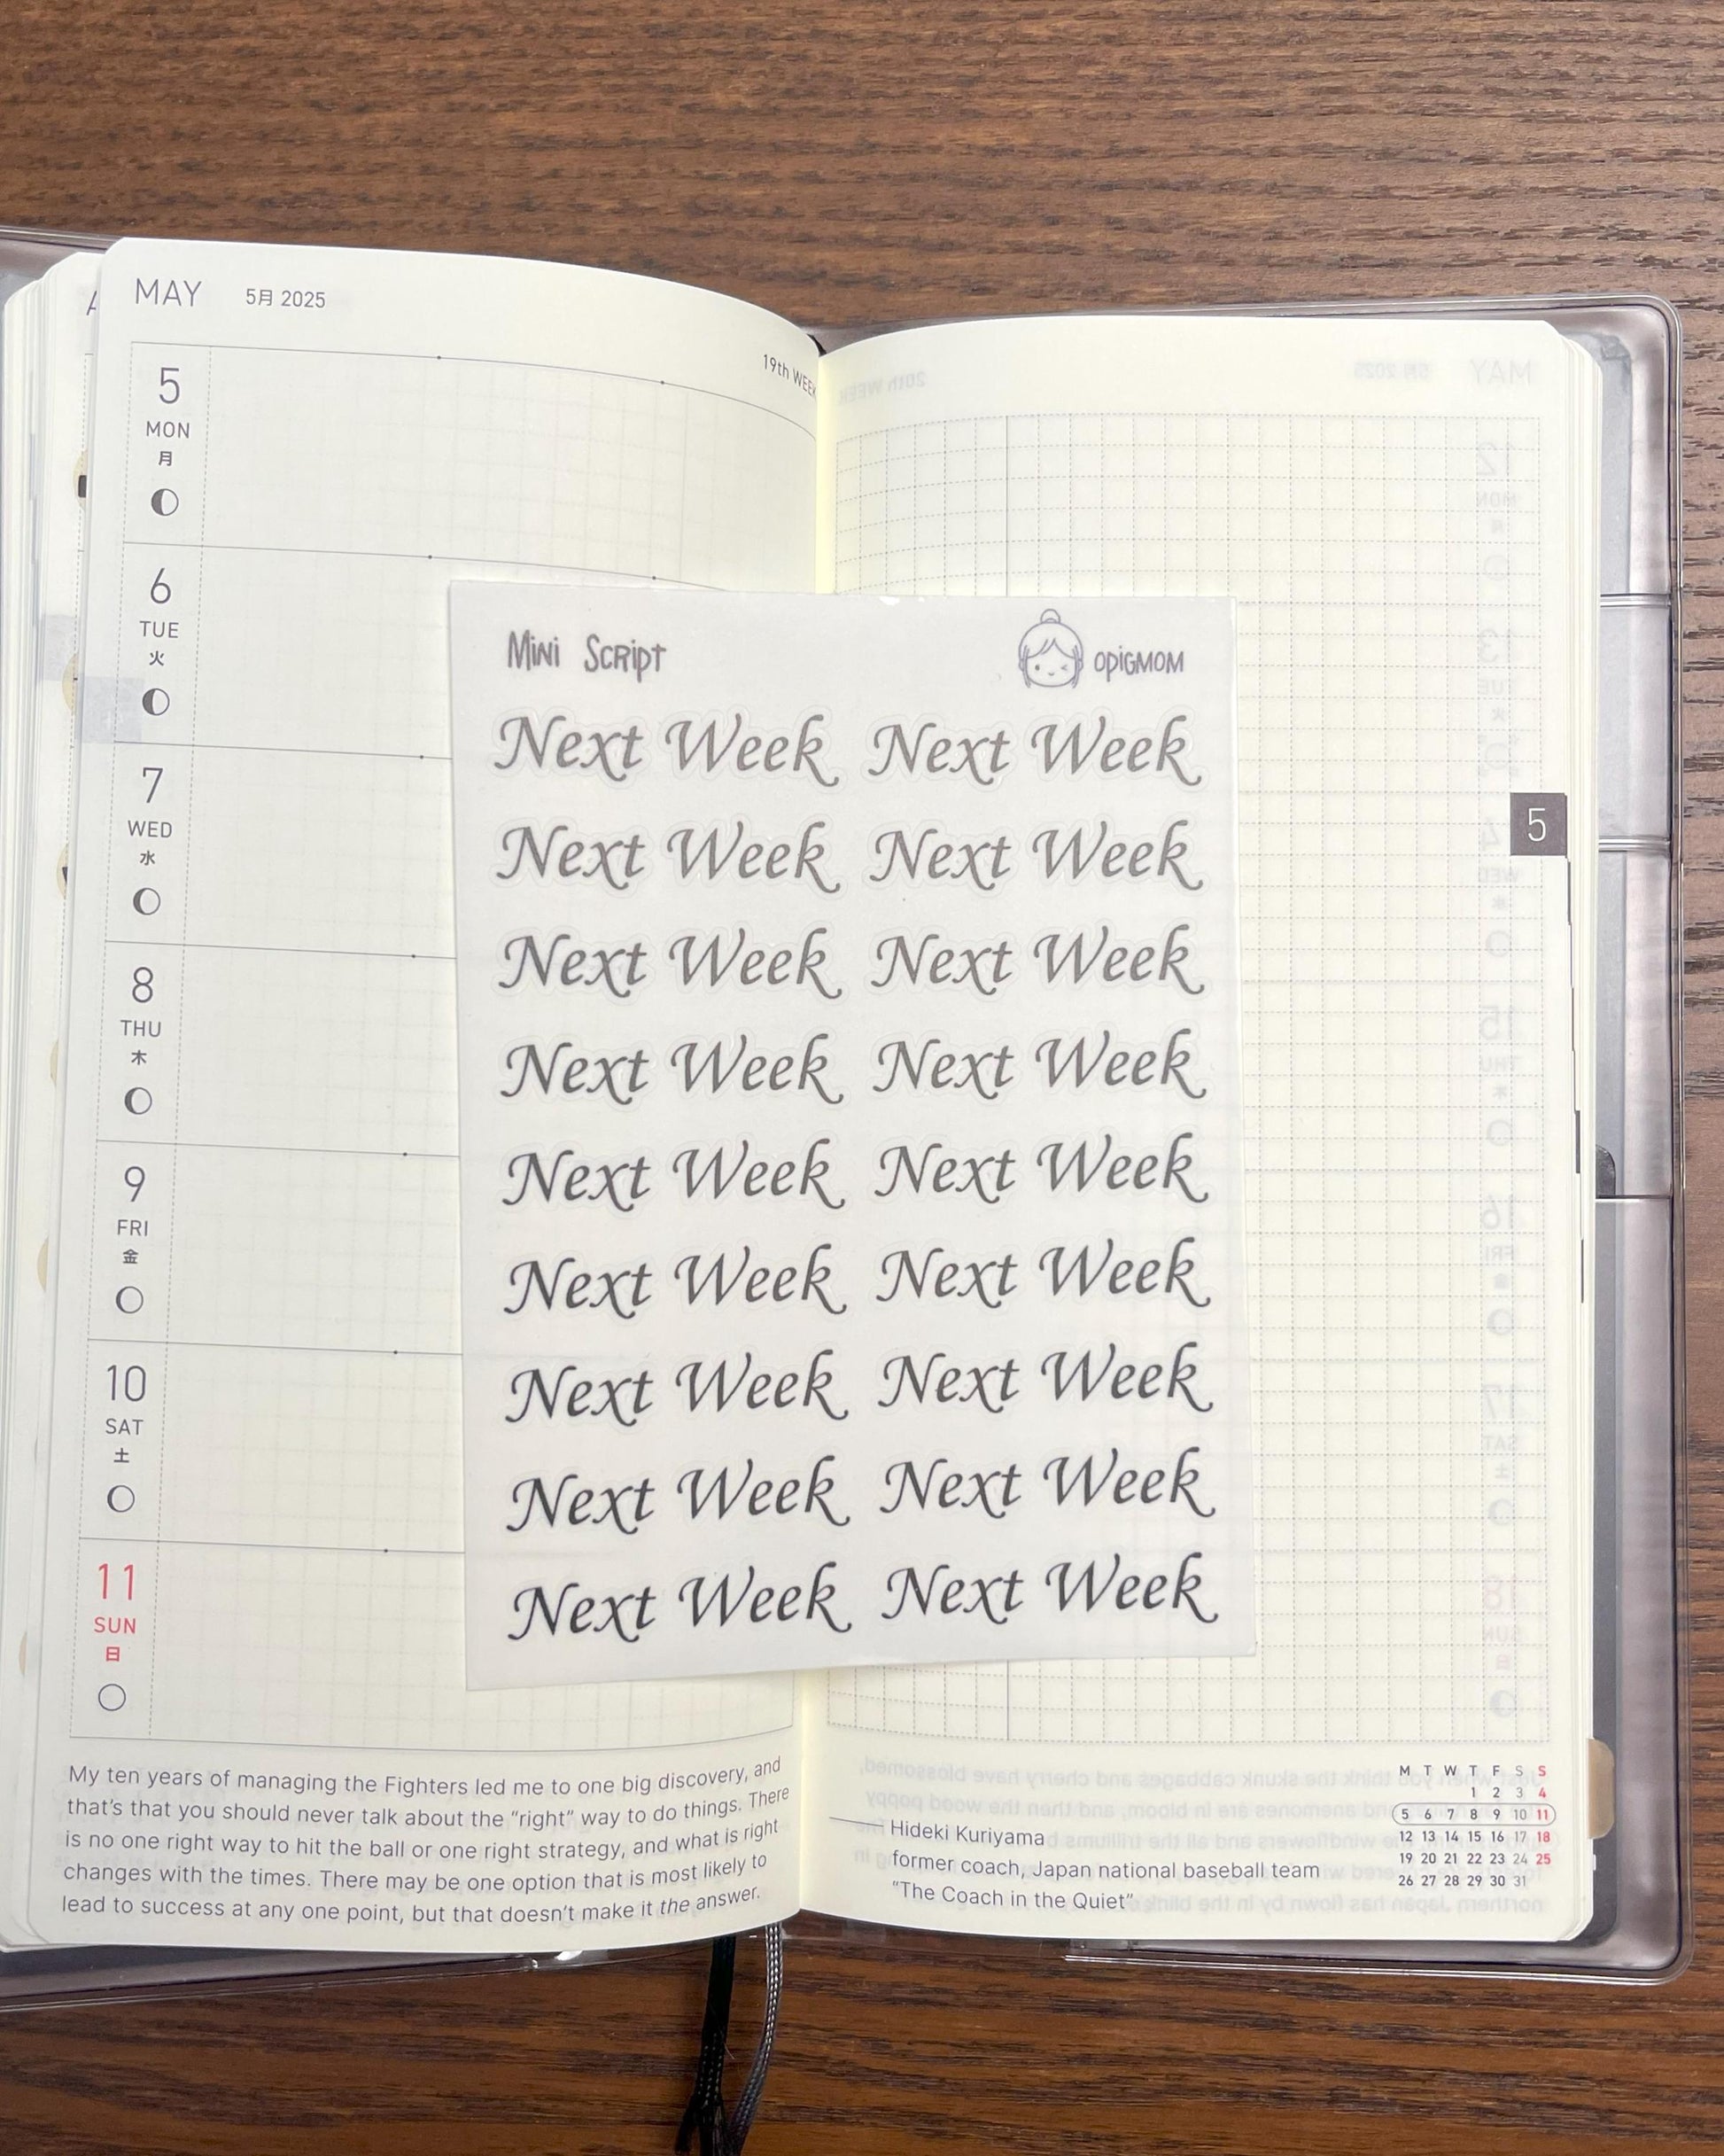 MAY 5月 2025
19th WEEK
5
MON
月
6
TUE
火
7
WED
水
8
THU
木
9
FRI
金
10
SAT
土
11
SUN
日
My ten years of managing the Fighters led me to one big discovery, and
that's that you should never talk about the "right" way to do things. There
is no one right way to hit the ball or one right strategy, and what is right
changes with the times. There may be one option that is most likely to
lead to success at any one point, but that doesn't make it the answer.
Mini Script
OPIGMOM
Next Week Next Week
Next Week Next Week
Next Week Next Week
Next Week Next Week
Next Week Next Week
Next Week Next Week
Next Week Next Week
Next Week Next Week
Next Week Next Week
5
Hideki Kuriyama
former coach, Japan national baseball team
"The Coach in the Quiet"
M T W T F S S
1 2 3 4
5 6 7 8 9 10 11
12 13 14 15 16 17 18
19 20 21 22 23 24 25
26 27 28 29 30 31